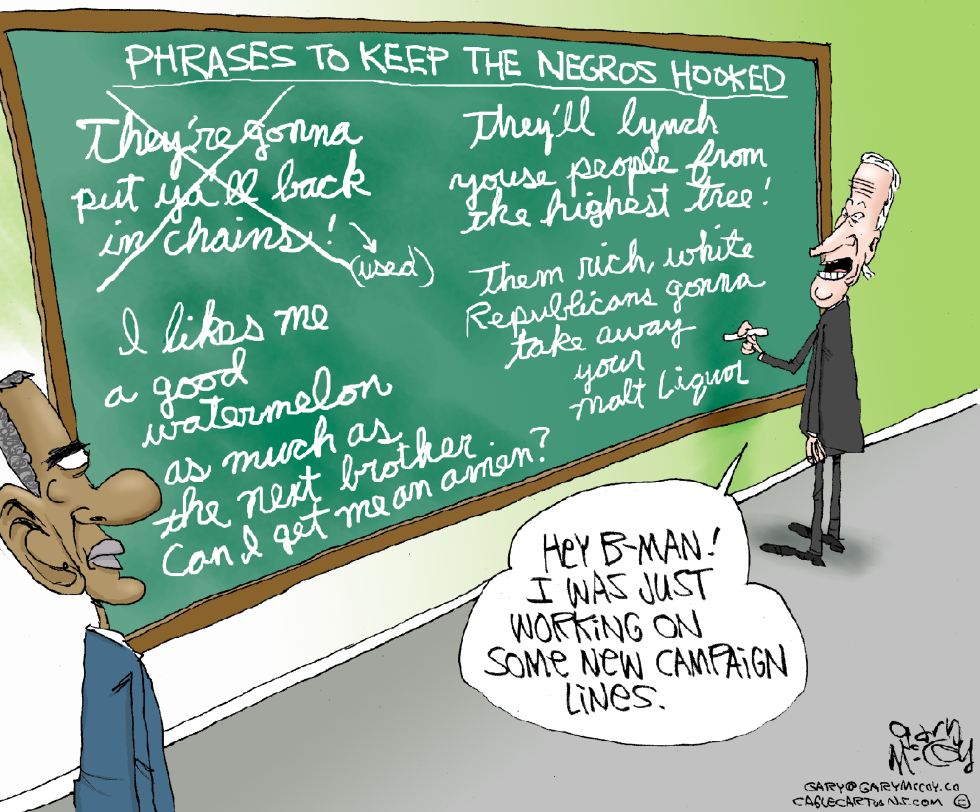 PHRASES TO KEEP THE NEGROS HOOKED
They're gonna
put ya'll back
in chains!
(used)
I likes me
a good
watermelon
as much as
the next brother
Can I get me an amen?
They'll lynch
youse people from
the highest tree!
Them rich, white
Republicans gonna
take away
your
Malt Liquor
HEY B-MAN!
I WAS JUST
WORKING ON
SOME NEW CAMPAIGN
LINES.
GARY
McCOY
GARY@GARYMCCOY.CO
CAGLECARTOONS.COM